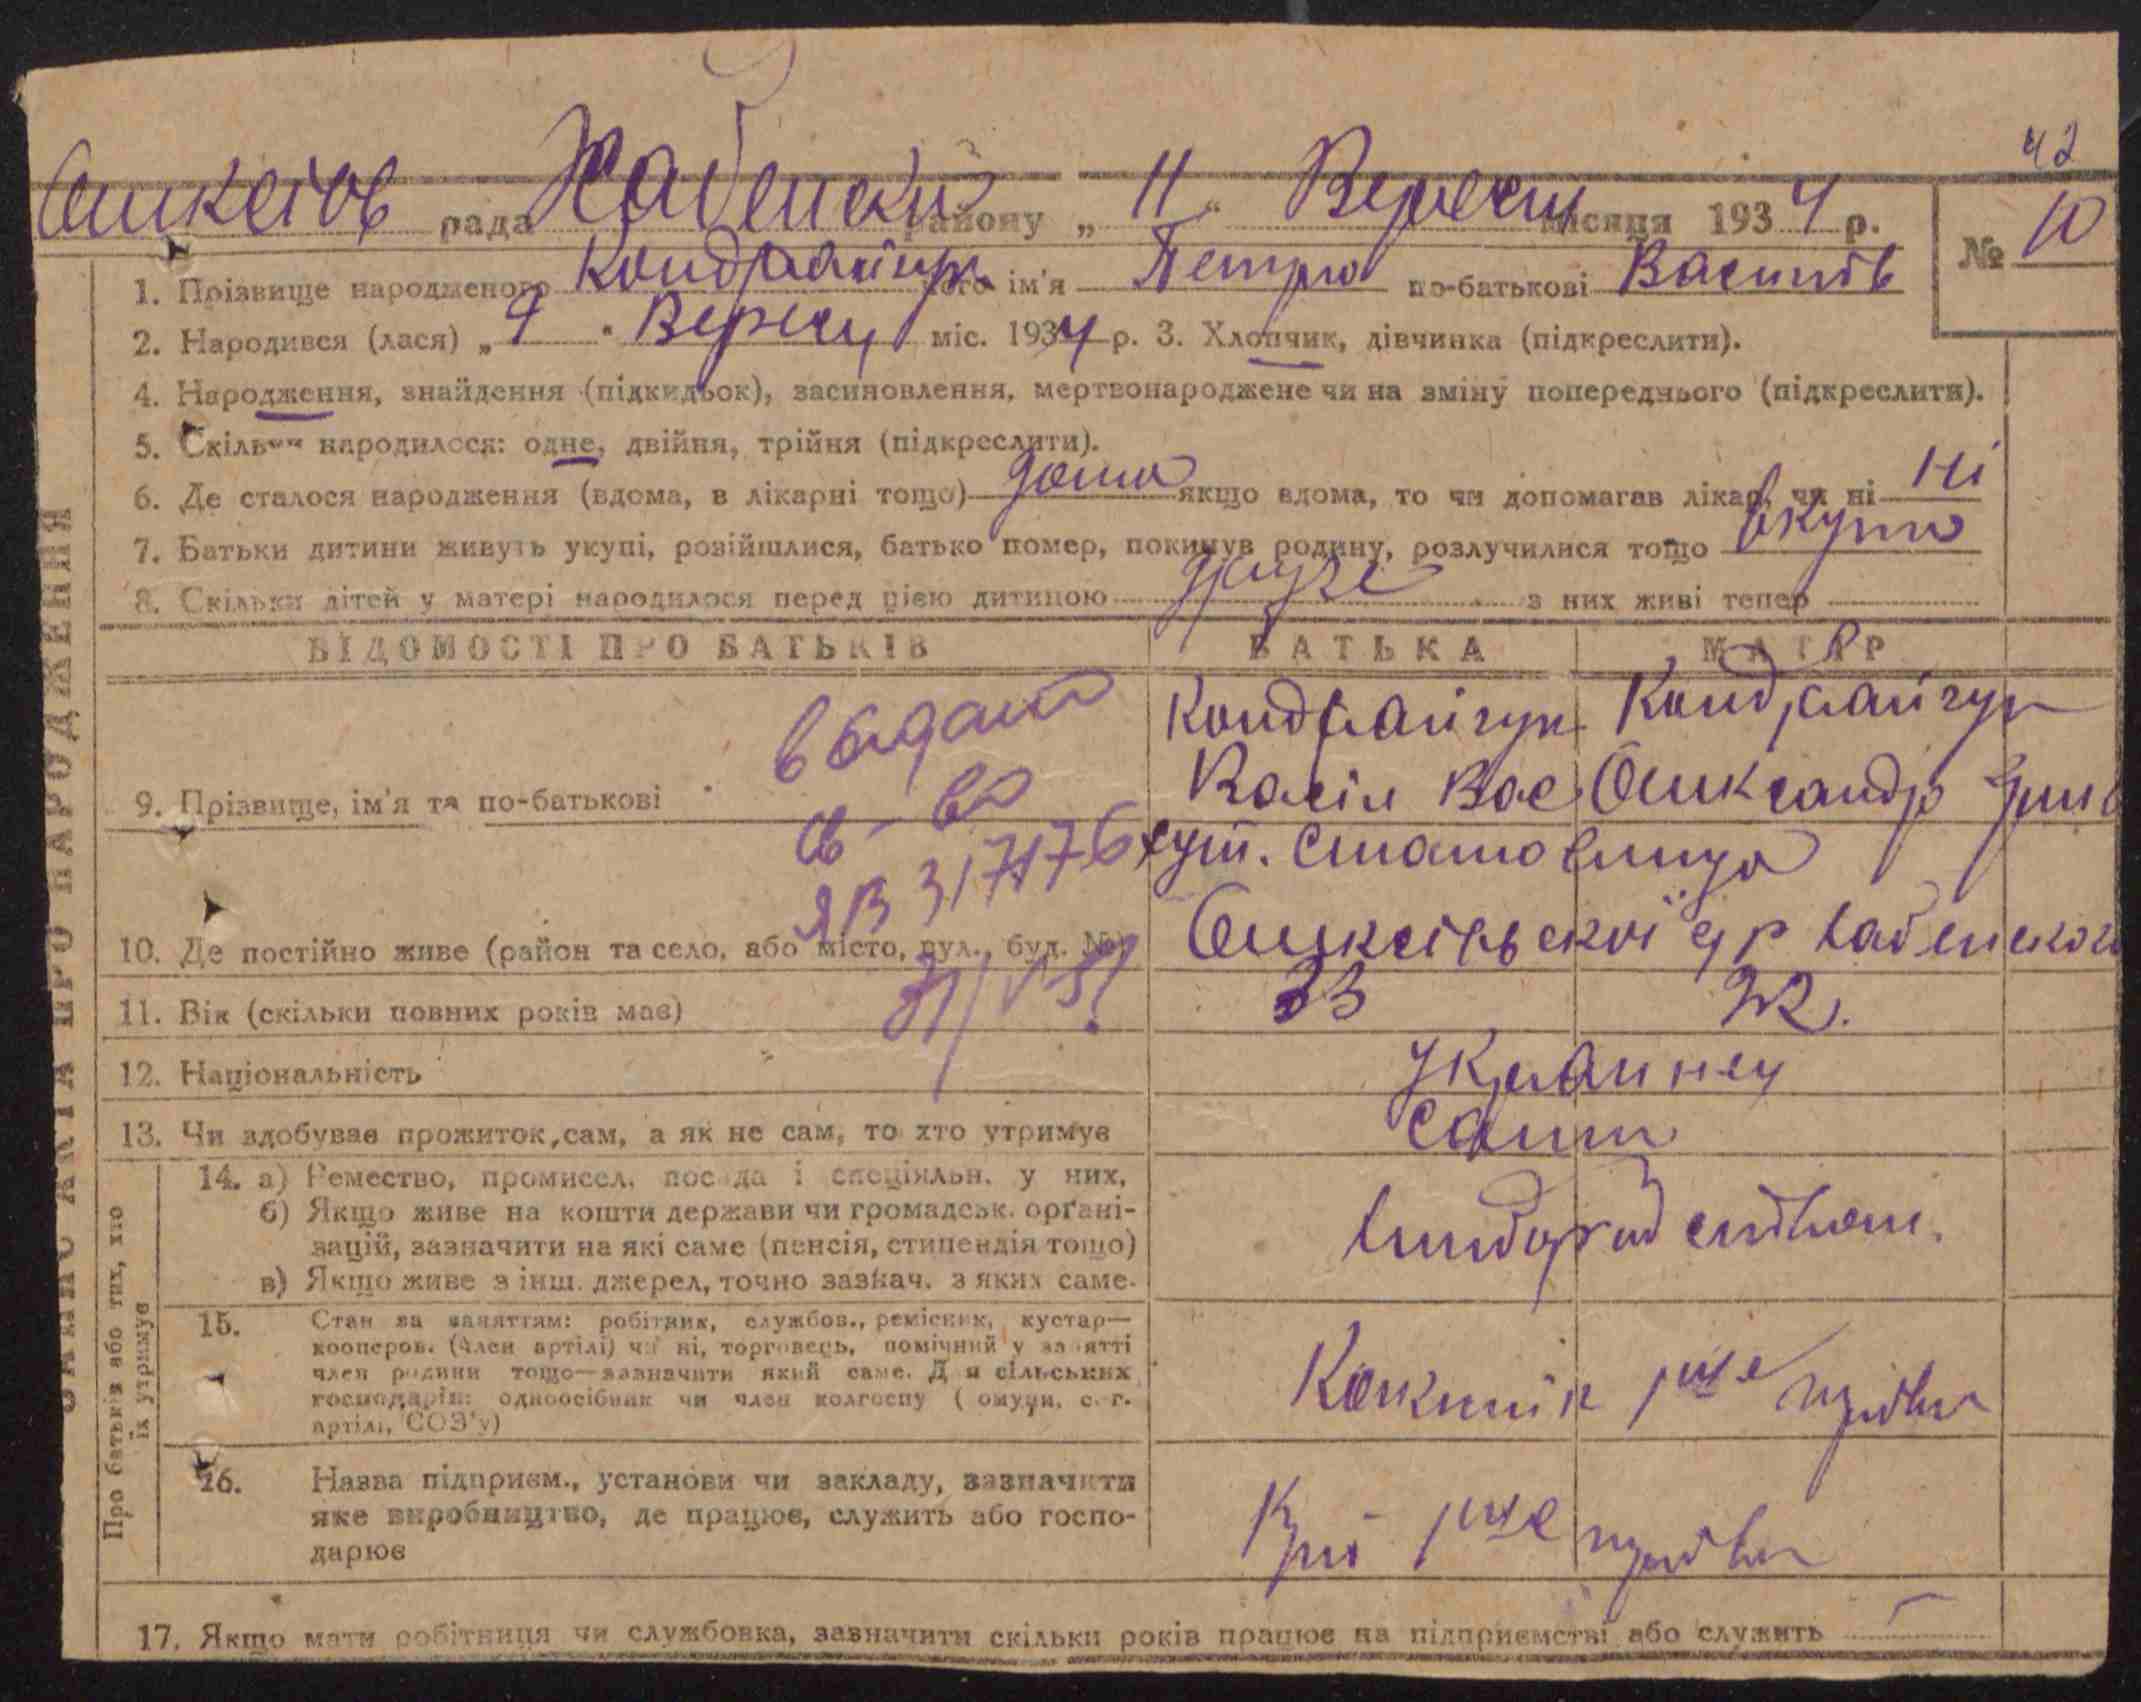 42
рада Хабенский району „ 11 “ Вересня місяця 1934 р. № 10
1. Прізвище народженого Кондрайчук його ім'я Петро по-батькові Василів
2. Народився (лася) „ 9 “ Вересня міс. 1934 р. 3. Хлопчик, дівчинка (підкреслити).
4. Народження, знайдення (підкидьок), засиновлення, мертвонароджене чи на зміну попереднього (підкреслити).
5. Скільки народилося: одне, двійня, трійня (підкреслити).
6. Де сталося народження (вдома, в лікарні тощо) дома якщо вдома, то чи допомагав лікар, чи ні Ні
7. Батьки дитини живуть укупі, розійшлися, батько помер, покинув родину, розлучилися тощо вкупі
8. Скільки дітей у матері народилося перед цією дитиною друге з них живі тепер
ЗАПИС АКТА ПРО НАРОДЖЕННЯ
ВІДОМОСТІ ПРО БАТЬКІВ БАТЬКА МАТЕР
выдано
св-во
ЯВ 317176
9. Прізвище, ім'я та по-батькові Кондрайчук Кондрайчук
Васіл Вас Олександр
хут.
10. Де постійно живе (район та село, або місто, вул., буд. №)
11. Вік (скільки повних років має) 33
12. Національність Украинец
13. Чи здобуває прожиток, сам, а як не сам, то хто утримує Сами
Про батьків або тих, хто їх утримує
14. а) Ремество, промисел, посада і спеціяльн. у них,
б) Якщо живе на кошти держави чи громадськ. орґані-
зацій, зазначити на які саме (пенсія, стипендія тощо)
в) Якщо живе з інш. джерел, точно зазнач. з яких саме.
15. Стан за заняттям: робітник, службов., ремісник, кустар—
кооперов. (член артілі) чи ні, торговець, помічний у занятті
член родини тощо—зазначити який саме. Для сільських
господарів: одноосібник чи член колгоспу (комуни, с.-г.
артілі, СОЗ'у)
16. Назва підприєм., установи чи закладу, зазначити
яке виробництво, де працює, служить або госпо-
дарює
17. Якщо мати робітниця чи службовка, зазначити скільки років працює на підприємстві або служить